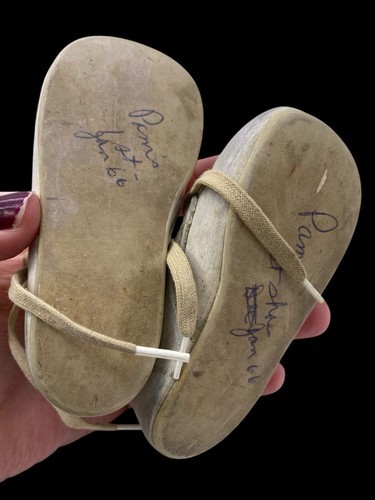 Pam's
1st -
Jan 66
Pam
st sho
Jan 66